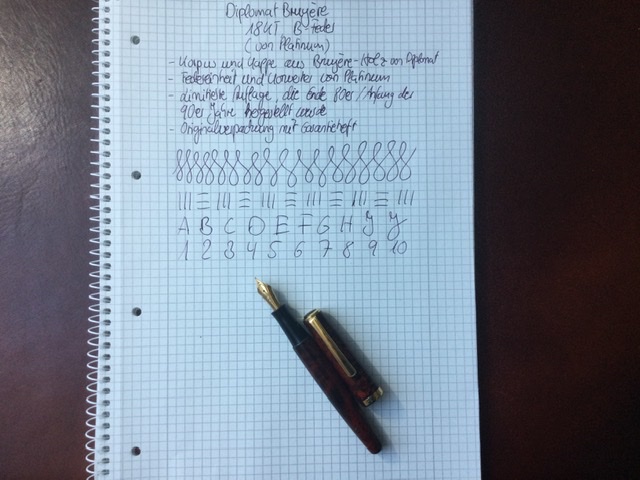 Diplomat Bruyère
18KT B-Feder
(von Platinum)
- Korpus und Kappe aus Bruyère-Holz von Diplomat
- Federeinheit und Konverter von Platinum
- limitierte Auflage, die Ende 80er/Anfang der
90er Jahre hergestellt wurde
- Originalverpackung mit Garantieheft
A B C D E F G H I J
1 2 3 4 5 6 7 8 9 10